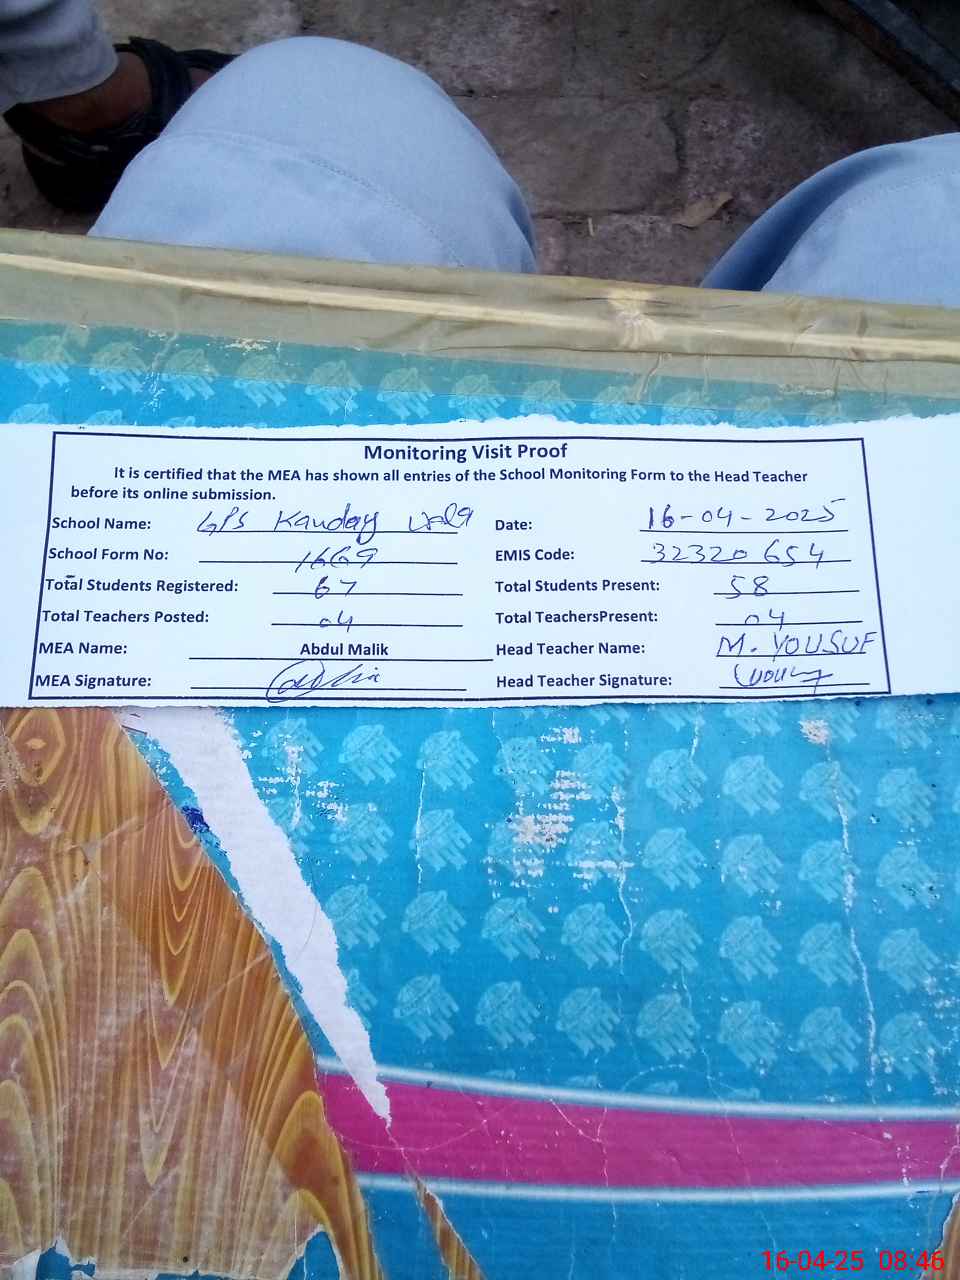 Monitoring Visit Proof
It is certified that the MEA has shown all entries of the School Monitoring Form to the Head Teacher
before its online submission.
School Name: GPS Kanday Wala Date: 16-04-2025
School Form No: 1669 EMIS Code: 32320654
Total Students Registered: 67 Total Students Present: 58
Total Teachers Posted: 04 Total TeachersPresent: 04
MEA Name: Abdul Malik Head Teacher Name: M. YOUSUF
MEA Signature: Head Teacher Signature:
16-04-25 08:46